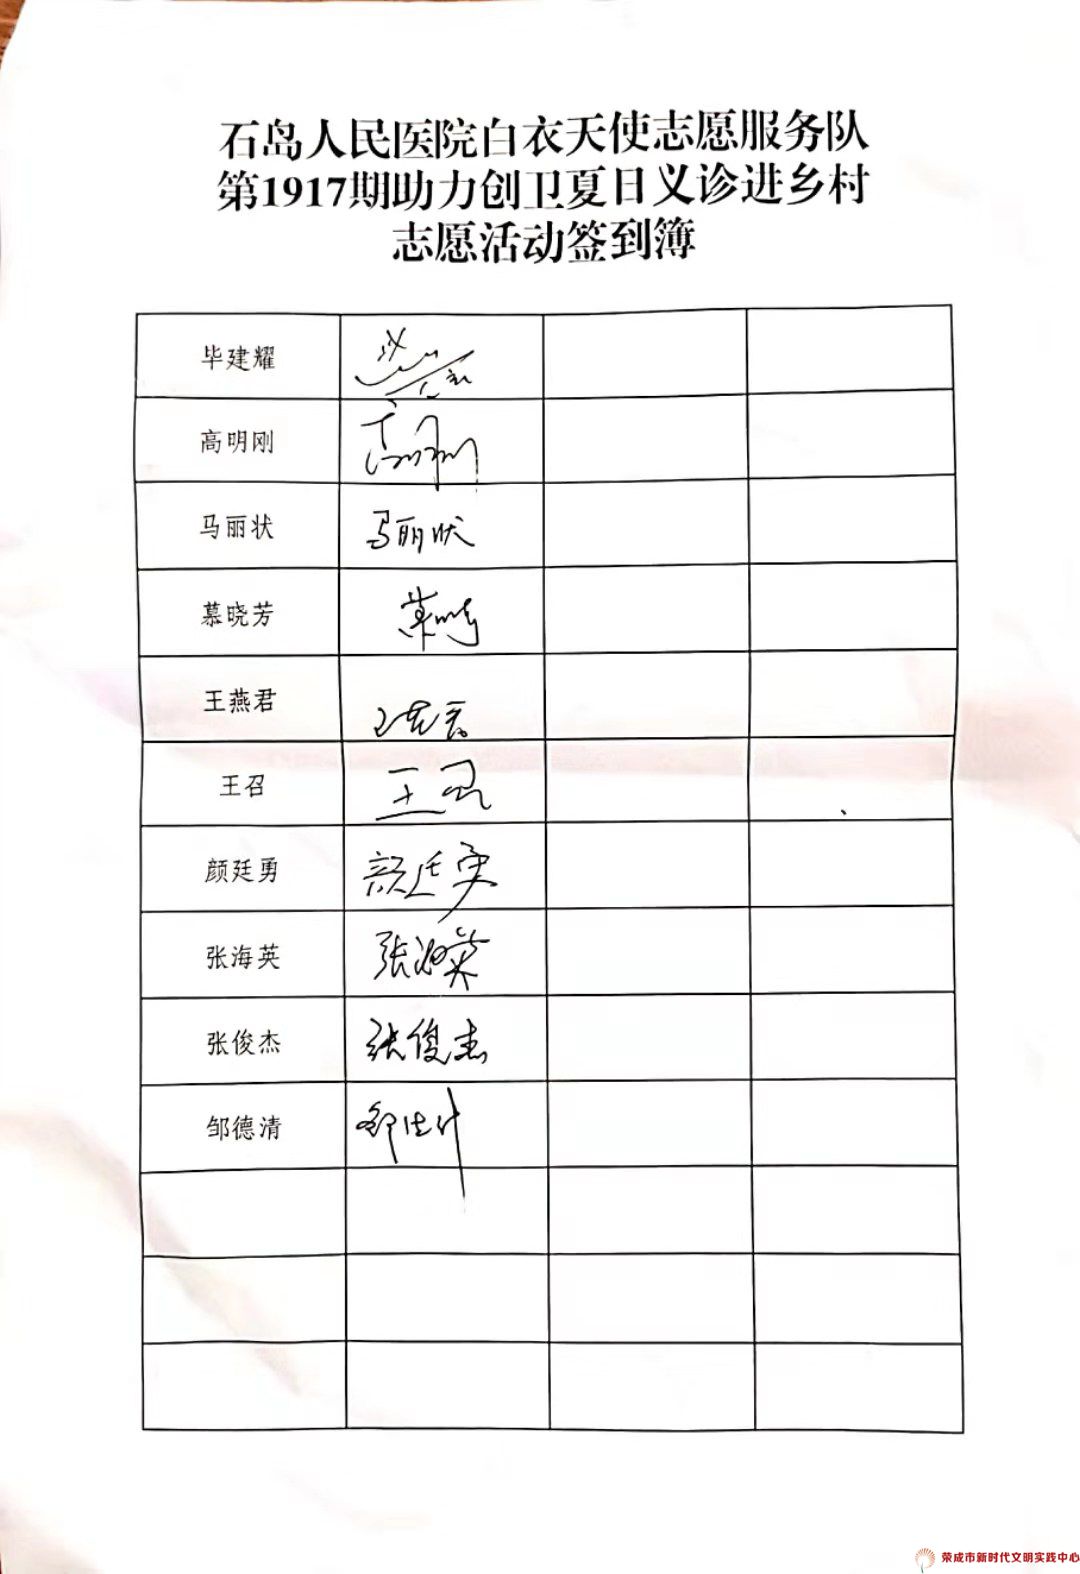 石岛人民医院白衣天使志愿服务队
第1917期助力创卫夏日义诊进乡村
志愿活动签到簿
毕建耀
高明刚 高明刚
马丽状 马丽状
慕晓芳
王燕君
王召 王召
颜廷勇 颜廷勇
张海英 张海英
张俊杰 张俊杰
邹德清
荣成市新时代文明实践中心